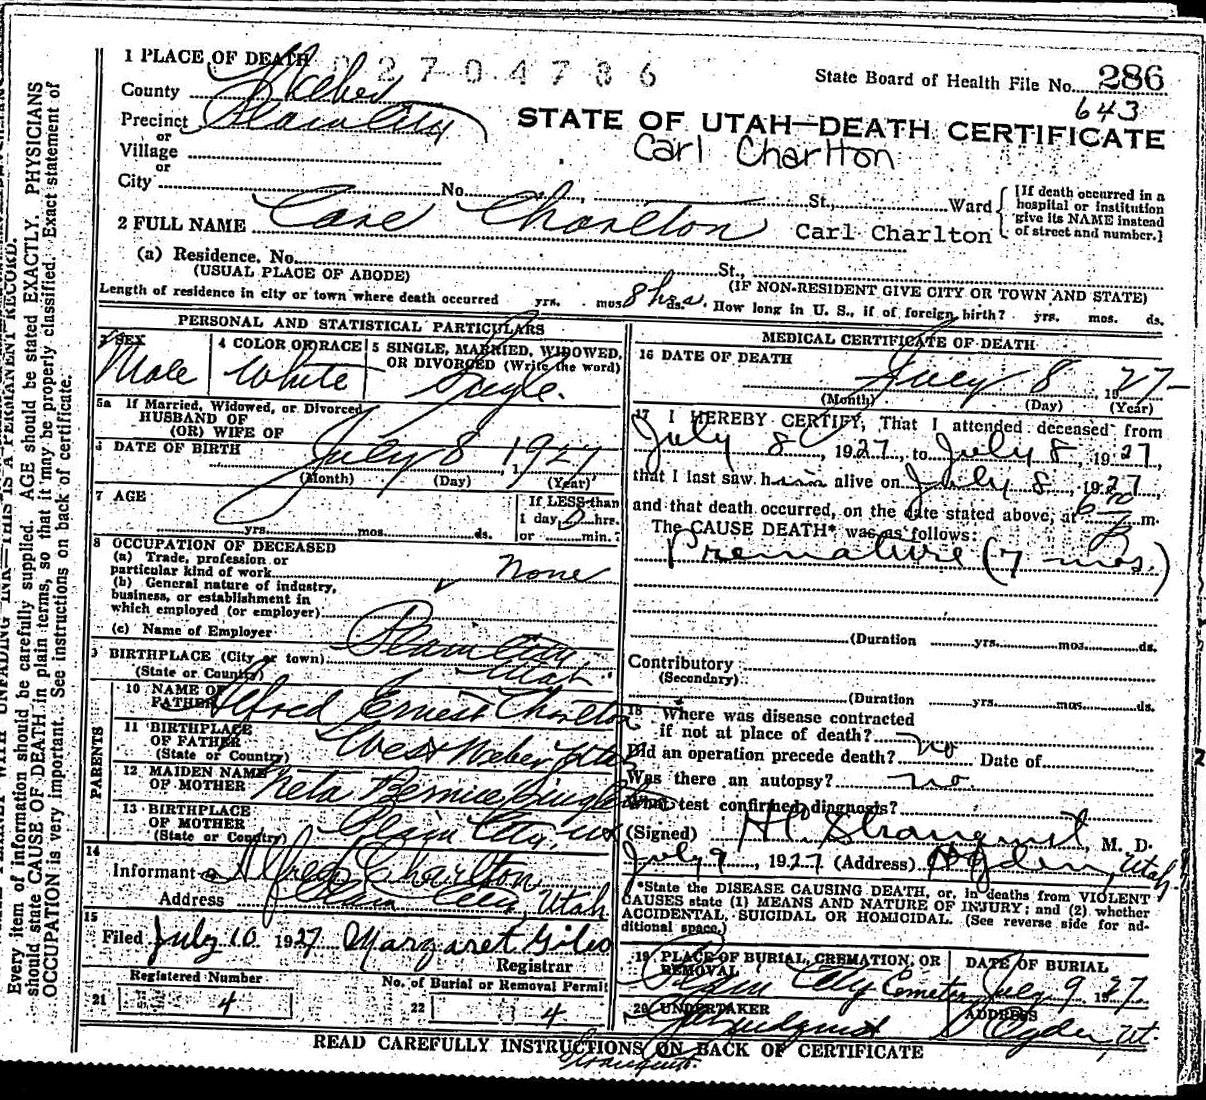 1 PLACE OF DEATH 02704786
State Board of Health File No. 286
643
County Weber
Precinct Plain City
or
Village
or
City No. St., Ward
STATE OF UTAH—DEATH CERTIFICATE
Carl Charlton
[If death occurred in a
hospital or institution
give its NAME instead
of street and number.]
2 FULL NAME Carl Charlton Carl Charlton
(a) Residence. No. St.,
(USUAL PLACE OF ABODE) (IF NON-RESIDENT GIVE CITY OR TOWN AND STATE)
Length of residence in city or town where death occurred yrs. mos. 8 hrs. ds. How long in U. S., if of foreign birth? yrs. mos. ds.
PERSONAL AND STATISTICAL PARTICULARS
3 SEX
Male
4 COLOR OR RACE
White
5 SINGLE, MARRIED, WIDOWED,
OR DIVORCED (Write the word)
Single.
5a If Married, Widowed, or Divorced
HUSBAND OF
(OR) WIFE OF
6 DATE OF BIRTH July 8, 1927
(Month) (Day) (Year)
7 AGE
yrs. mos. ds.
If LESS than
1 day 8 hrs.
or min.?
8 OCCUPATION OF DECEASED
(a) Trade, profession or
particular kind of work none
(b) General nature of industry,
business, or establishment in
which employed (or employer)
(c) Name of Employer
9 BIRTHPLACE (City or town) Plain City
(State or County) Utah
PARENTS
10 NAME OF
FATHER Alfred Ernest Charlton
11 BIRTHPLACE
OF FATHER West Weber, Utah
(State or Country)
12 MAIDEN NAME
OF MOTHER Neta Bernice
13 BIRTHPLACE
OF MOTHER Plain City, Ut
(State or Country)
14
Informant Alfred Charlton
Address Plain City, Utah
15
Filed July 10 1927 Margaret Giles
Registrar
Registered Number
21 4
No. of Burial or Removal Permit
22 4
MEDICAL CERTIFICATE OF DEATH
16 DATE OF DEATH
July 8, 1927
(Month) (Day) (Year)
17 I HEREBY CERTIFY, That I attended deceased from
July 8, 1927, to July 8, 1927,
that I last saw him alive on July 8, 1927,
and that death occurred, on the date stated above, at m.
The CAUSE DEATH* was as follows:
Premature (7 mos.)
(Duration yrs. mos. ds.
Contributory
(Secondary)
(Duration yrs. mos. ds.
18 Where was disease contracted
if not at place of death?
Did an operation precede death? no Date of
Was there an autopsy? no.
What test confirmed diagnosis?
(Signed) H. C. Stranquist, M. D.
July 9, 1927 (Address) Ogden, Utah.
*State the DISEASE CAUSING DEATH, or, in deaths from VIOLENT
CAUSES state (1) MEANS AND NATURE OF INJURY; and (2) whether
ACCIDENTAL, SUICIDAL OR HOMICIDAL. (See reverse side for ad-
ditional space.)
19 PLACE OF BURIAL, CREMATION, OR
REMOVAL
Plain City Cemetery
DATE OF BURIAL
July 9 1927
20 UNDERTAKER
Lindquist
ADDRESS
Ogden, Ut.
READ CAREFULLY INSTRUCTIONS ON BACK OF CERTIFICATE
Every item of information should be carefully supplied. AGE should be stated EXACTLY. PHYSICIANS
should state CAUSE OF DEATH in plain terms, so that it may be properly classified. Exact statement of
OCCUPATION is very important. See instructions on back of certificate.